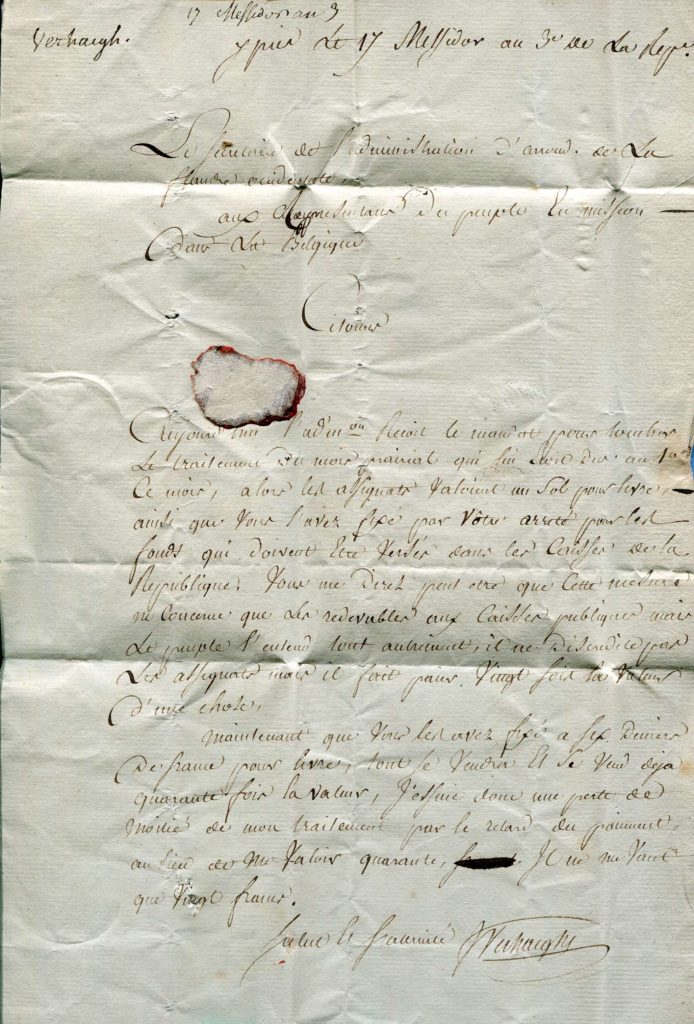 17 Messidor an 3
Verhaegh.
ypres Le 17 Messidor an 3e de La Repe.
Le Secretaire de l'administration d'arrond. de La
flandre occidentale,
aux Representans du peuple En mission
Dans La Belgique
Citoiens
Aujourd'hui l'adm.on Recoit le mandat pour toucher
Le traitement du mois prairial qui lui etoit du au 1er
Ce mois, alors les assignats Valoient un Sol pour livre,
ainsi que Vous l'avez fixé par Votre arreté pour les
fonds qui doivent Etre Versés dans les Caisses de la
Republique. Vous me Direz peut etre que Cette mesure
ne Concerne que Les redevables aux Caisses publiques mais
Le peuple l'entend tout autrement, il ne Discredite pas
Les assignats mais il fait paier Vingt fois la Valeur
d'une chose,
Maintenant que Vous les avez fixé a six Deniers
De france pour livre, tout se Vendra Et se Vend deja
quarante fois la valeur, J'essuie donc une perte de
moitié de mon traitement par le retard du paiment,
au lieu de me Valoir quarante, Il ne me Vaut
que Vingt francs.
Salut et fraternité Verhaeghe